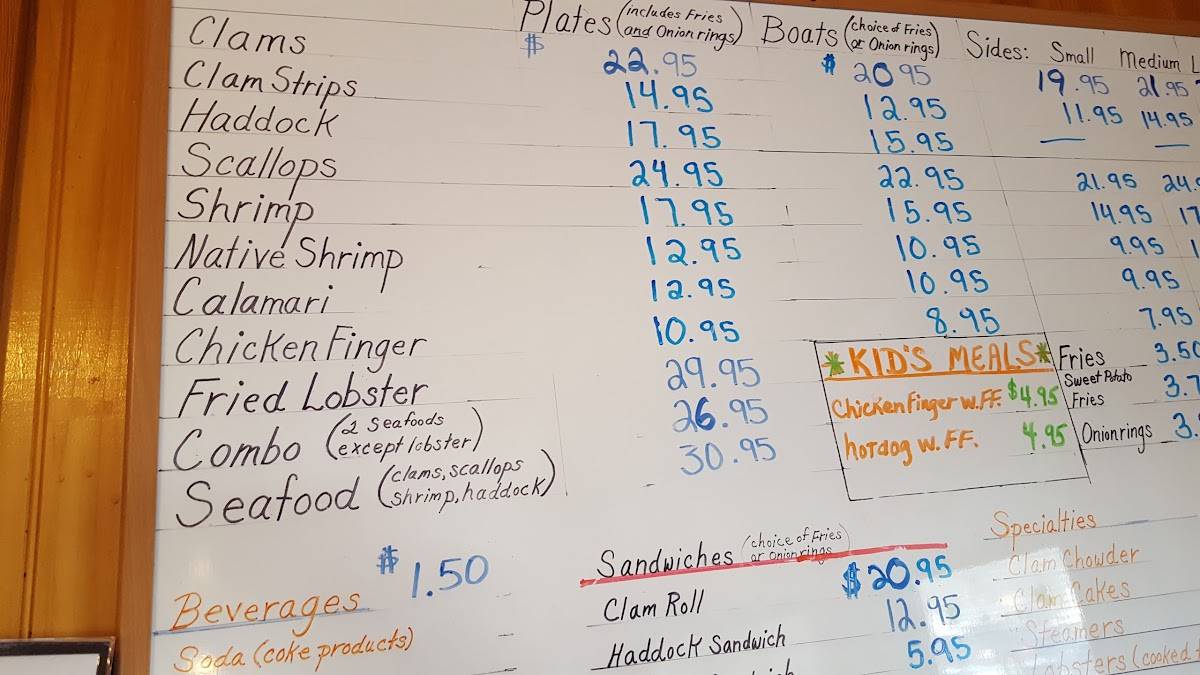 Plates (includes Fries and Onion rings) Boats (choice of Fries or Onion rings) Sides: Small Medium L
Clams $ 22.95 $ 20 95 19.95 21.95
Clam Strips 14.95 12.95 11.95 14.95
Haddock 17.95 15.95 — —
Scallops 24.95 22.95 21.95 24.
Shrimp 17.95 15.95 14.95 17
Native Shrimp 12.95 10.95 9.95 1
Calamari 12.95 10.95 9.95
Chicken Finger 10.95 8.95 7.95
Fried Lobster 29.95
Combo (2 Seafoods except lobster) 26.95
Seafood (clams, scallops shrimp, haddock) 30.95
*KID'S MEALS*
Chicken Finger w. FF. $4.95
hotdog w. FF. 4.95
Fries 3.50
Sweet Potato Fries 3.7
Onion rings 3.
Beverages $1.50
Soda (coke products)
Sandwiches (choice of Fries or Onion rings)
Clam Roll $20.95
Haddock Sandwich 12.95
5.95
Specialties
Clam Chowder
Clam Cakes
Steamers
Lobsters (cooked